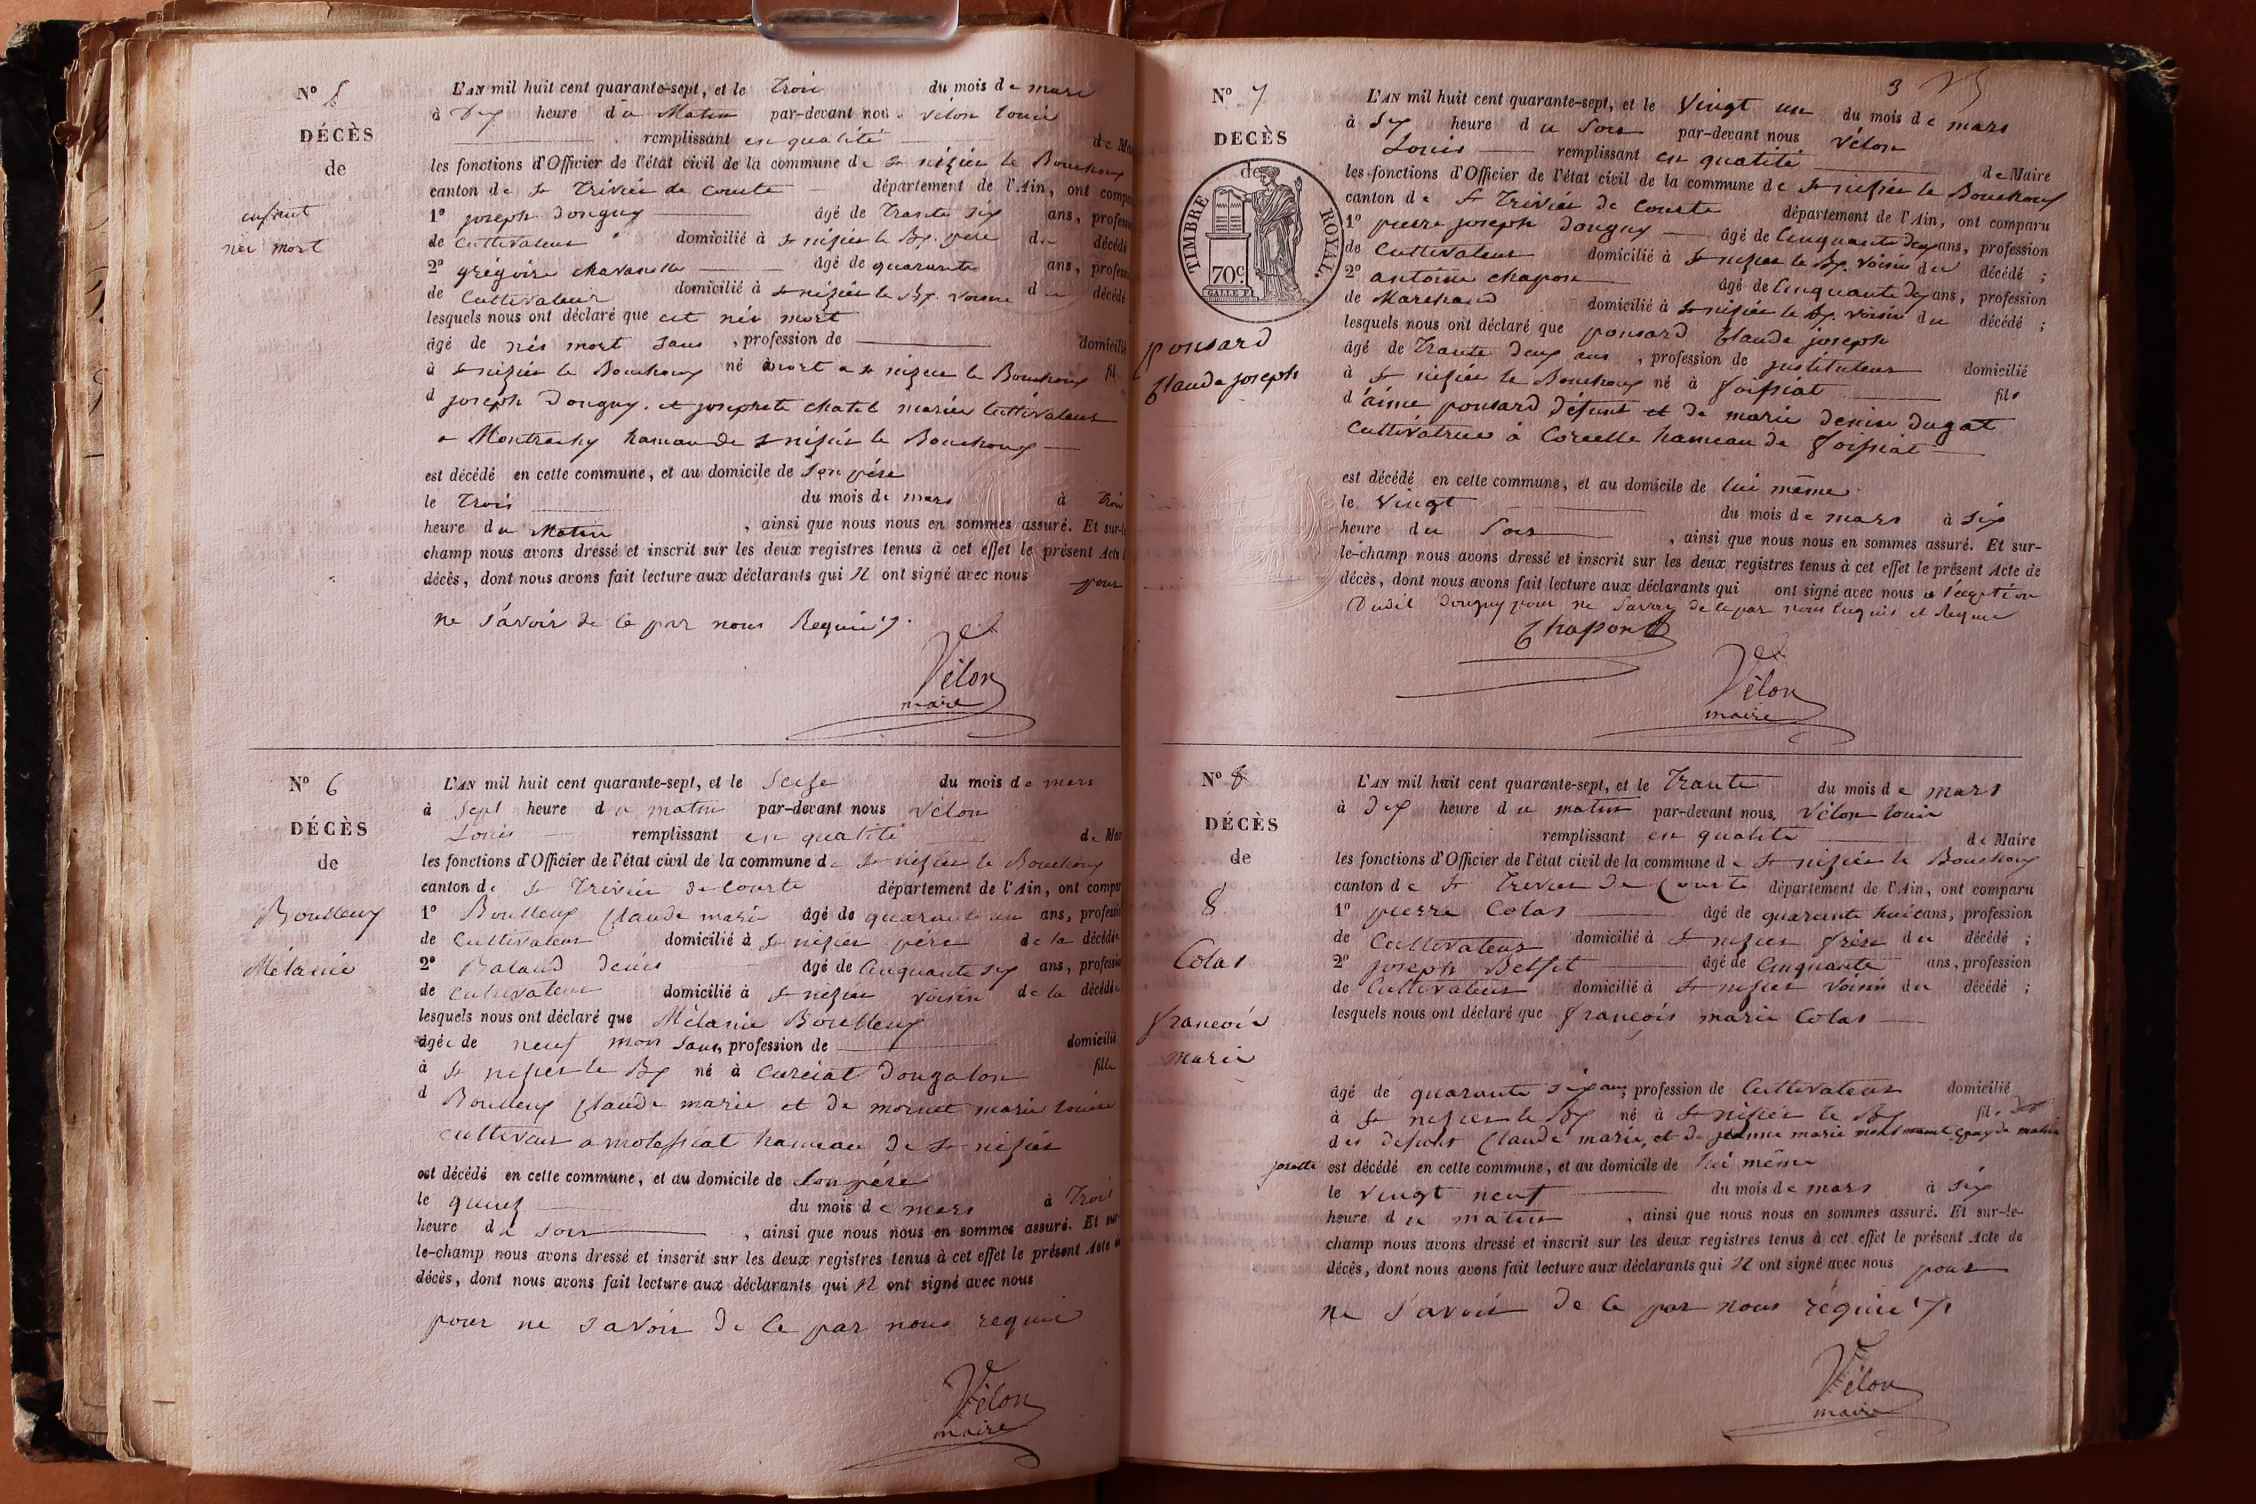 N° 5
DÉCÈS
de
enfant
néi mort
L'AN mil huit cent quarante-sept, et le trois du mois de mars
à dix heure du Matin par-devant nou vélon louis
remplissant en qualité de Ma
les fonctions d'Officier de l'état civil de la commune de st nizier le Bouchoux
canton de st trivier de courte département de l'Ain, ont compa
1° joseph donguy âgé de trante six ans, profess
de cultivateur domicilié à st nizier le Bx père du décédé
2° grégoire chavanelle âgé de quarante ans, profess
de cultivateur domicilié à st nizier le Bx voisin du décédé
lesquels nous ont déclaré que est néi mort
âgé de néi mort sans , profession de domicilié
à st nizier le Bouchoux né mort a st nizier le Bouchoux fil
d joseph Donguy et josephete chatel mariée cultivateur
a Montrachy hameau de st nizier le Bouchoux
est décédé en cette commune, et au domicile de son père
le trois du mois de mars à trois
heure du Matin , ainsi que nous nous en sommes assuré. Et sur-le
champ nous avons dressé et inscrit sur les deux registres tenus à cet effet le présent Acte
décès, dont nous avons fait lecture aux déclarants qui N ont signé avec nous pour
ne savoir de ce par nous Requis.
Vélon
maire
N° 6
DÉCÈS
de
Boulleux
Mélanie
L'AN mil huit cent quarante-sept, et le Seize du mois de mars
à sept heure du matin par-devant nous vélon
Louis remplissant en qualité de Mai
les fonctions d'Officier de l'état civil de la commune de st nizier le Bouchoux
canton de st trivier de courte département de l'Ain, ont compar
1° Boulleux Claude marie âgé de quarante un ans, profession
de cultivateur domicilié à st nizier père de la décédée
2° Baland denis âgé de cinquante six ans, profession
de cultivateur domicilié à st nizier voisin de la décédée
lesquels nous ont déclaré que Mélanie Boulleux
âgée de neuf mois sans, profession de domicilié
à st nizier le Bx né à curciat dongalon fille
d Boulleux Claude marie et de mornet marie louise
cultiveur a molessiat hameau de st nizier
est décédé en cette commune, et au domicile de son père
le quinz du mois de mars à trois
heure du soir , ainsi que nous nous en sommes assuré. Et sur
le-champ nous avons dressé et inscrit sur les deux registres tenus à cet effet le présent Acte de
décès, dont nous avons fait lecture aux déclarants qui N ont signé avec nous
pour ne savoir de ce par nous requis
Vélon
maire
3
N° 7
DÉCÈS
de
TIMBRE ROYAL.
70c
ponsard
Claude joseph
L'AN mil huit cent quarante-sept, et le vingt un du mois de mars
à six heure du soir par-devant nous vélon
Louis remplissant en qualité de Maire
les fonctions d'Officier de l'état civil de la commune de st nizier le Bouchoux
canton de st trivier de courte département de l'Ain, ont comparu
1° pierre joseph donguy âgé de cinquante deux ans, profession
de cultivateur domicilié à st nizier le Bx voisin du décédé ;
2° antoine chapon âgé de cinquante dex ans, profession
de Marchand domicilié à st nizier le Bx voisin du décédé ;
lesquels nous ont déclaré que ponsard Claude joseph
âgé de trante deux ans , profession de instituteur domicilié
à st nizier le Bouchoux né à foissiat fils
d'aimé ponsard défunt et de marie denise dugat
cultivatrice à Corcelle hameau de foissiat
est décédé en cette commune, et au domicile de lui même
le vingt du mois de mars à six
heure du soir , ainsi que nous nous en sommes assuré. Et sur-
le-champ nous avons dressé et inscrit sur les deux registres tenus à cet effet le présent Acte de
décès, dont nous avons fait lecture aux déclarants qui ont signé avec nous a l'eception
Dudit donguy pour ne savoir de ce par nous enquis et Requis
Chapon
Vélon
maire
N° 8
DÉCÈS
de
8
Colas
françois
marie
L'AN mil huit cent quarante-sept, et le trante du mois de mars
à dix heure du matin par-devant nous, vélon louis
remplissant en qualité de Maire
les fonctions d'Officier de l'état civil de la commune de st nizier le Bouchoux
canton de st trivier de Courte département de l'Ain, ont comparu
1° pierre Colas âgé de quarante huit ans, profession
de cultivateur domicilié à st nizier frère du décédé ;
2° joseph Belfit âgé de cinquante ans, profession
de cultivateur domicilié à st nizier voisin du décédé ;
lesquels nous ont déclaré que françois marie Colas
âgé de quarante six ans, profession de cultivateur domicilié
à st nizier le Bx né à st nizier le Bx fil
des défunt Claude marie, et de jeanne marie
josette est décédé en cette commune, et au domicile de lui même
le vingt neuf du mois de mars à six
heure du matin , ainsi que nous nous en sommes assuré. Et sur-le-
champ nous avons dressé et inscrit sur les deux registres tenus à cet effet le présent Acte de
décès, dont nous avons fait lecture aux déclarants qui N ont signé avec nous pour
ne savoir de ce par nous requis
Vélon
maire